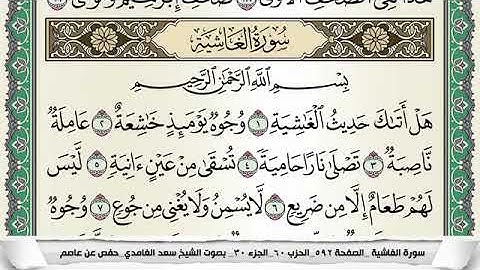 هَٰذَا لَفِى ٱلصُّحُفِ ٱلْأُولَىٰ ١٨ صُحُفِ إِبْرَٰهِيمَ وَمُوسَىٰ ١٩
سُورَةُ الْغَاشِيَةِ
بِسْمِ ٱللَّهِ ٱلرَّحْمَٰنِ ٱلرَّحِيمِ
هَلْ أَتَىٰكَ حَدِيثُ ٱلْغَٰشِيَةِ ١ وُجُوهٌ يَوْمَئِذٍ خَٰشِعَةٌ ٢ عَامِلَةٌ
نَّاصِبَةٌ ٣ تَصْلَىٰ نَارًا حَامِيَةً ٤ تُسْقَىٰ مِنْ عَيْنٍ ءَانِيَةٍ ٥ لَّيْسَ
لَهُمْ طَعَامٌ إِلَّا مِن ضَرِيعٍ ٦ لَّا يُسْمِنُ وَلَا يُغْنِى مِن جُوعٍ ٧ وُجُوهٌ
سورة الغاشية _الصفحة ٥٩٢_الحزب ٦٠_الجزء ٣٠_ بصوت الشيخ سعد الغامدي_حفص عن عاصم